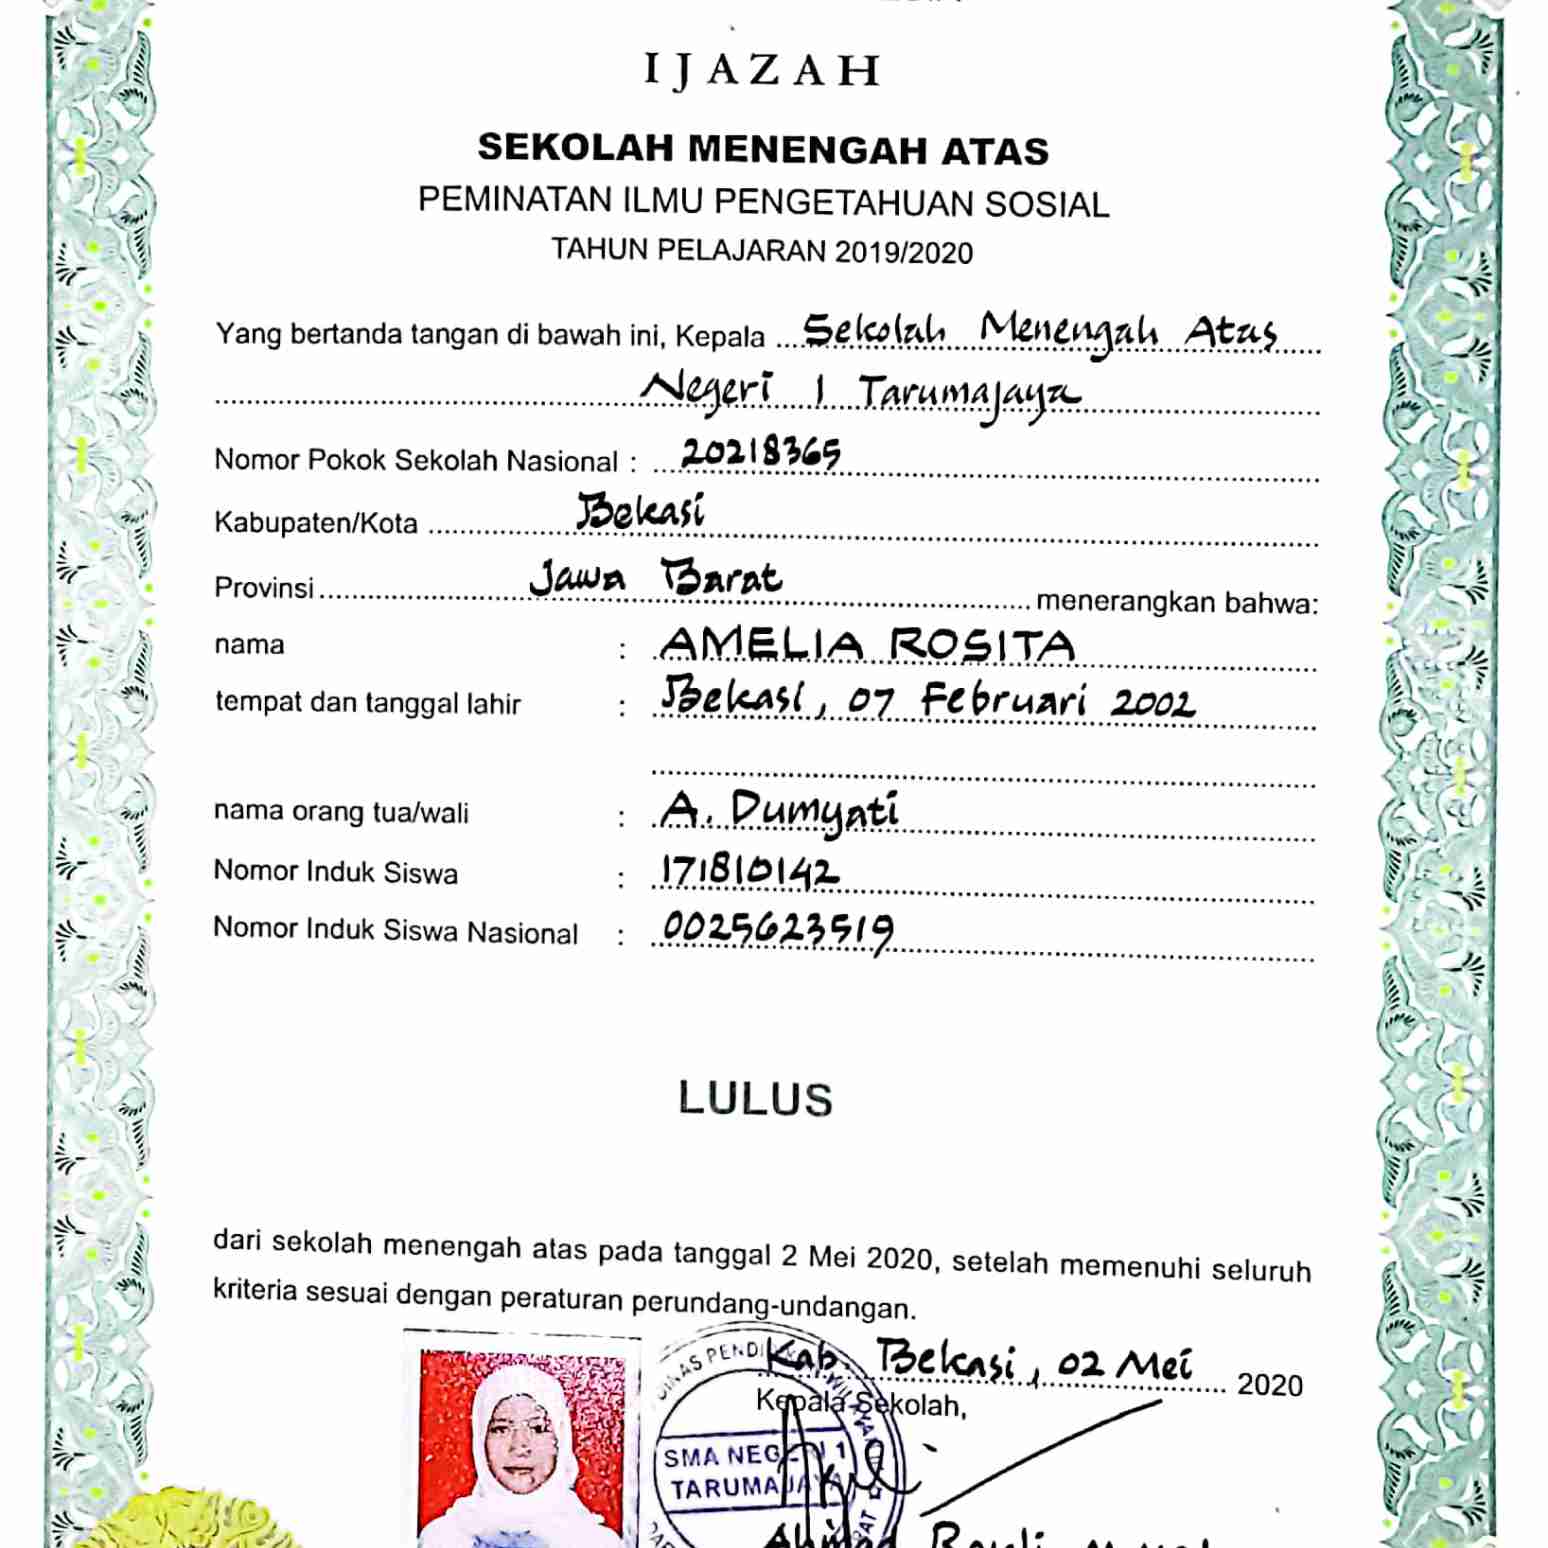 IJAZAH
SEKOLAH MENENGAH ATAS
PEMINATAN ILMU PENGETAHUAN SOSIAL
TAHUN PELAJARAN 2019/2020
Yang bertanda tangan di bawah ini, Kepala Sekolah Menengah Atas
Negeri 1 Tarumajaya
Nomor Pokok Sekolah Nasional : 20218365
Kabupaten/Kota Bekasi
Provinsi Jawa Barat menerangkan bahwa:
nama : AMELIA ROSITA
tempat dan tanggal lahir : Bekasi, 07 Februari 2002
nama orang tua/wali : A. Dumyati
Nomor Induk Siswa : 171810142
Nomor Induk Siswa Nasional : 0025623519
LULUS
dari sekolah menengah atas pada tanggal 2 Mei 2020, setelah memenuhi seluruh
kriteria sesuai dengan peraturan perundang-undangan.
Kab. Bekasi, 02 Mei 2020
Kepala Sekolah,
SMA NEGERI 1
TARUMAJAYA